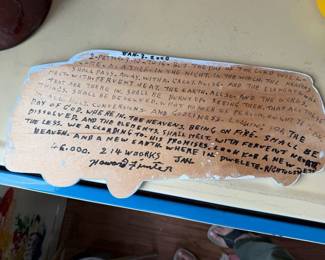 MAR. 3. 2002
2-PETER-3-10-14- BUT THE DAY OF THE LORD WILL
COME AS A THIEF IN THE NIGHT. IN THE WHICH THE
SHALL PASS AWAY WITH A GREAT NOISE AND THE ELEMENTS
MELT WITH FERVENT HEAT. THE EARTH ALSO AND THE WORKS
THAT ARE THERE IN SHALL BE BURNED UP. SEEING THEN THAT ALL
THINGS SHALL BE DISSOLVED, WHAT MANNER OF PERSON OUGHT
IN ALL HOLY CONVERSIONS AND GODLINESS.
DAY OF GOD, WHERE IN THE HEAVENS BEING ON FIRE. SHALL BE
DISSOLVED. AND THE ELEMENTS SHALL MELT WITH FERVENT HEAT
THE LESS. WE ACCORDING TO HIS PROMISES. LOOK FOR A NEW
HEAVEN. AND A NEW EARTH WHERE IN DWELLETH RIGHTOUSNESS
46.000. 214 WORKS
Howard Finster